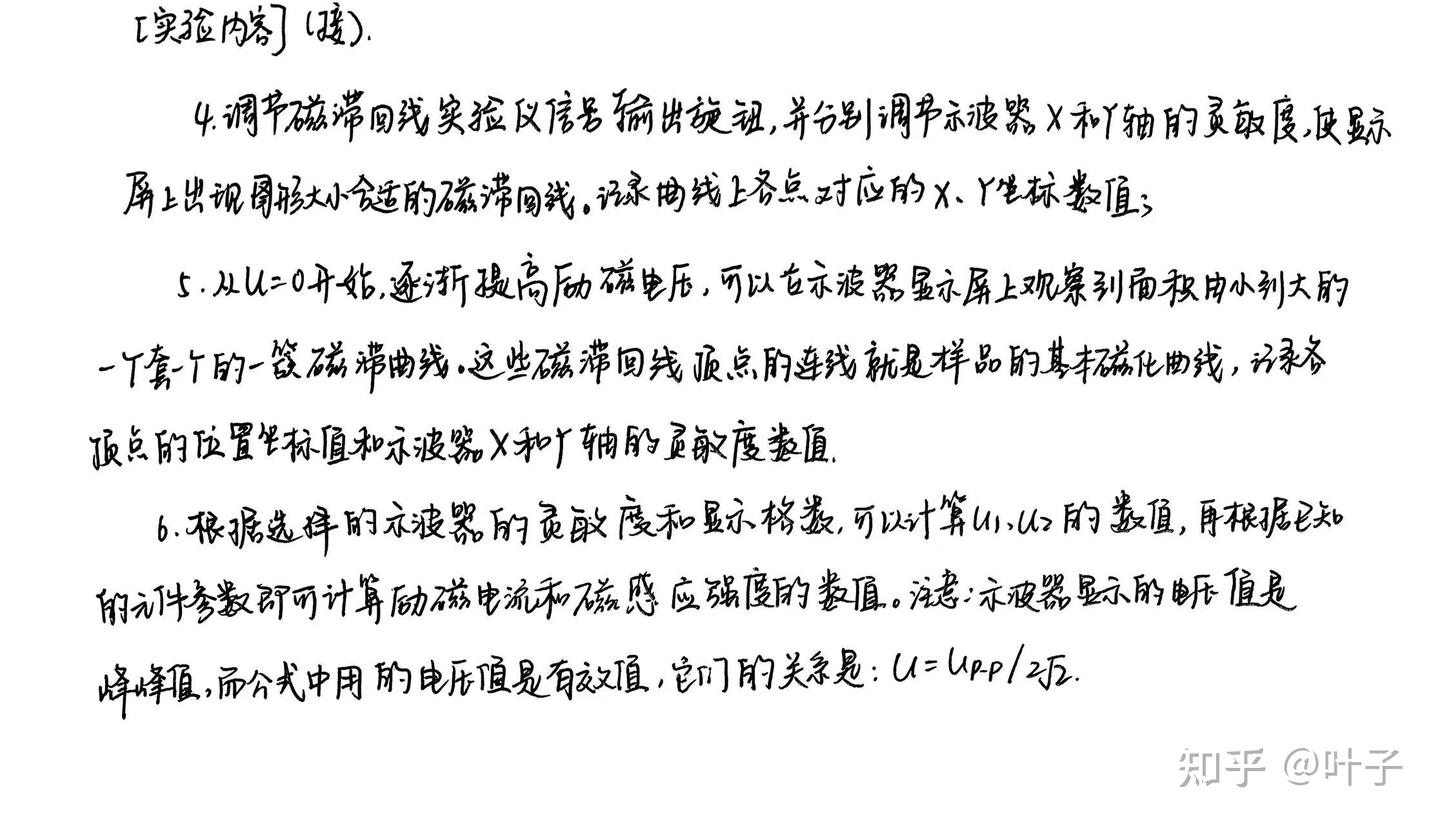 [实验内容](接).
4.调节磁滞回线实验仪信号输出旋钮,并分别调节示波器X和Y轴的灵敏度,使显示
屏上出现图形大小合适的磁滞回线。记录曲线上各点对应的X、Y坐标数值;
5.从U=0开始,逐渐提高励磁电压,可以在示波器显示屏上观察到面积由小到大的
一个套一个的一簇磁滞曲线。这些磁滞回线顶点的连线就是样品的基本磁化曲线,记录各
顶点的位置坐标值和示波器X和Y轴的灵敏度数值.
6.根据选择的示波器的灵敏度和显示格数,可以计算U1、U2的数值,再根据已知
的元件参数即可计算励磁电流和磁感应强度的数值。注意:示波器显示的电压值是
峰峰值,而公式中用的电压值是有效值,它们的关系是:U=UP-P/2√2.
知乎 @叶子